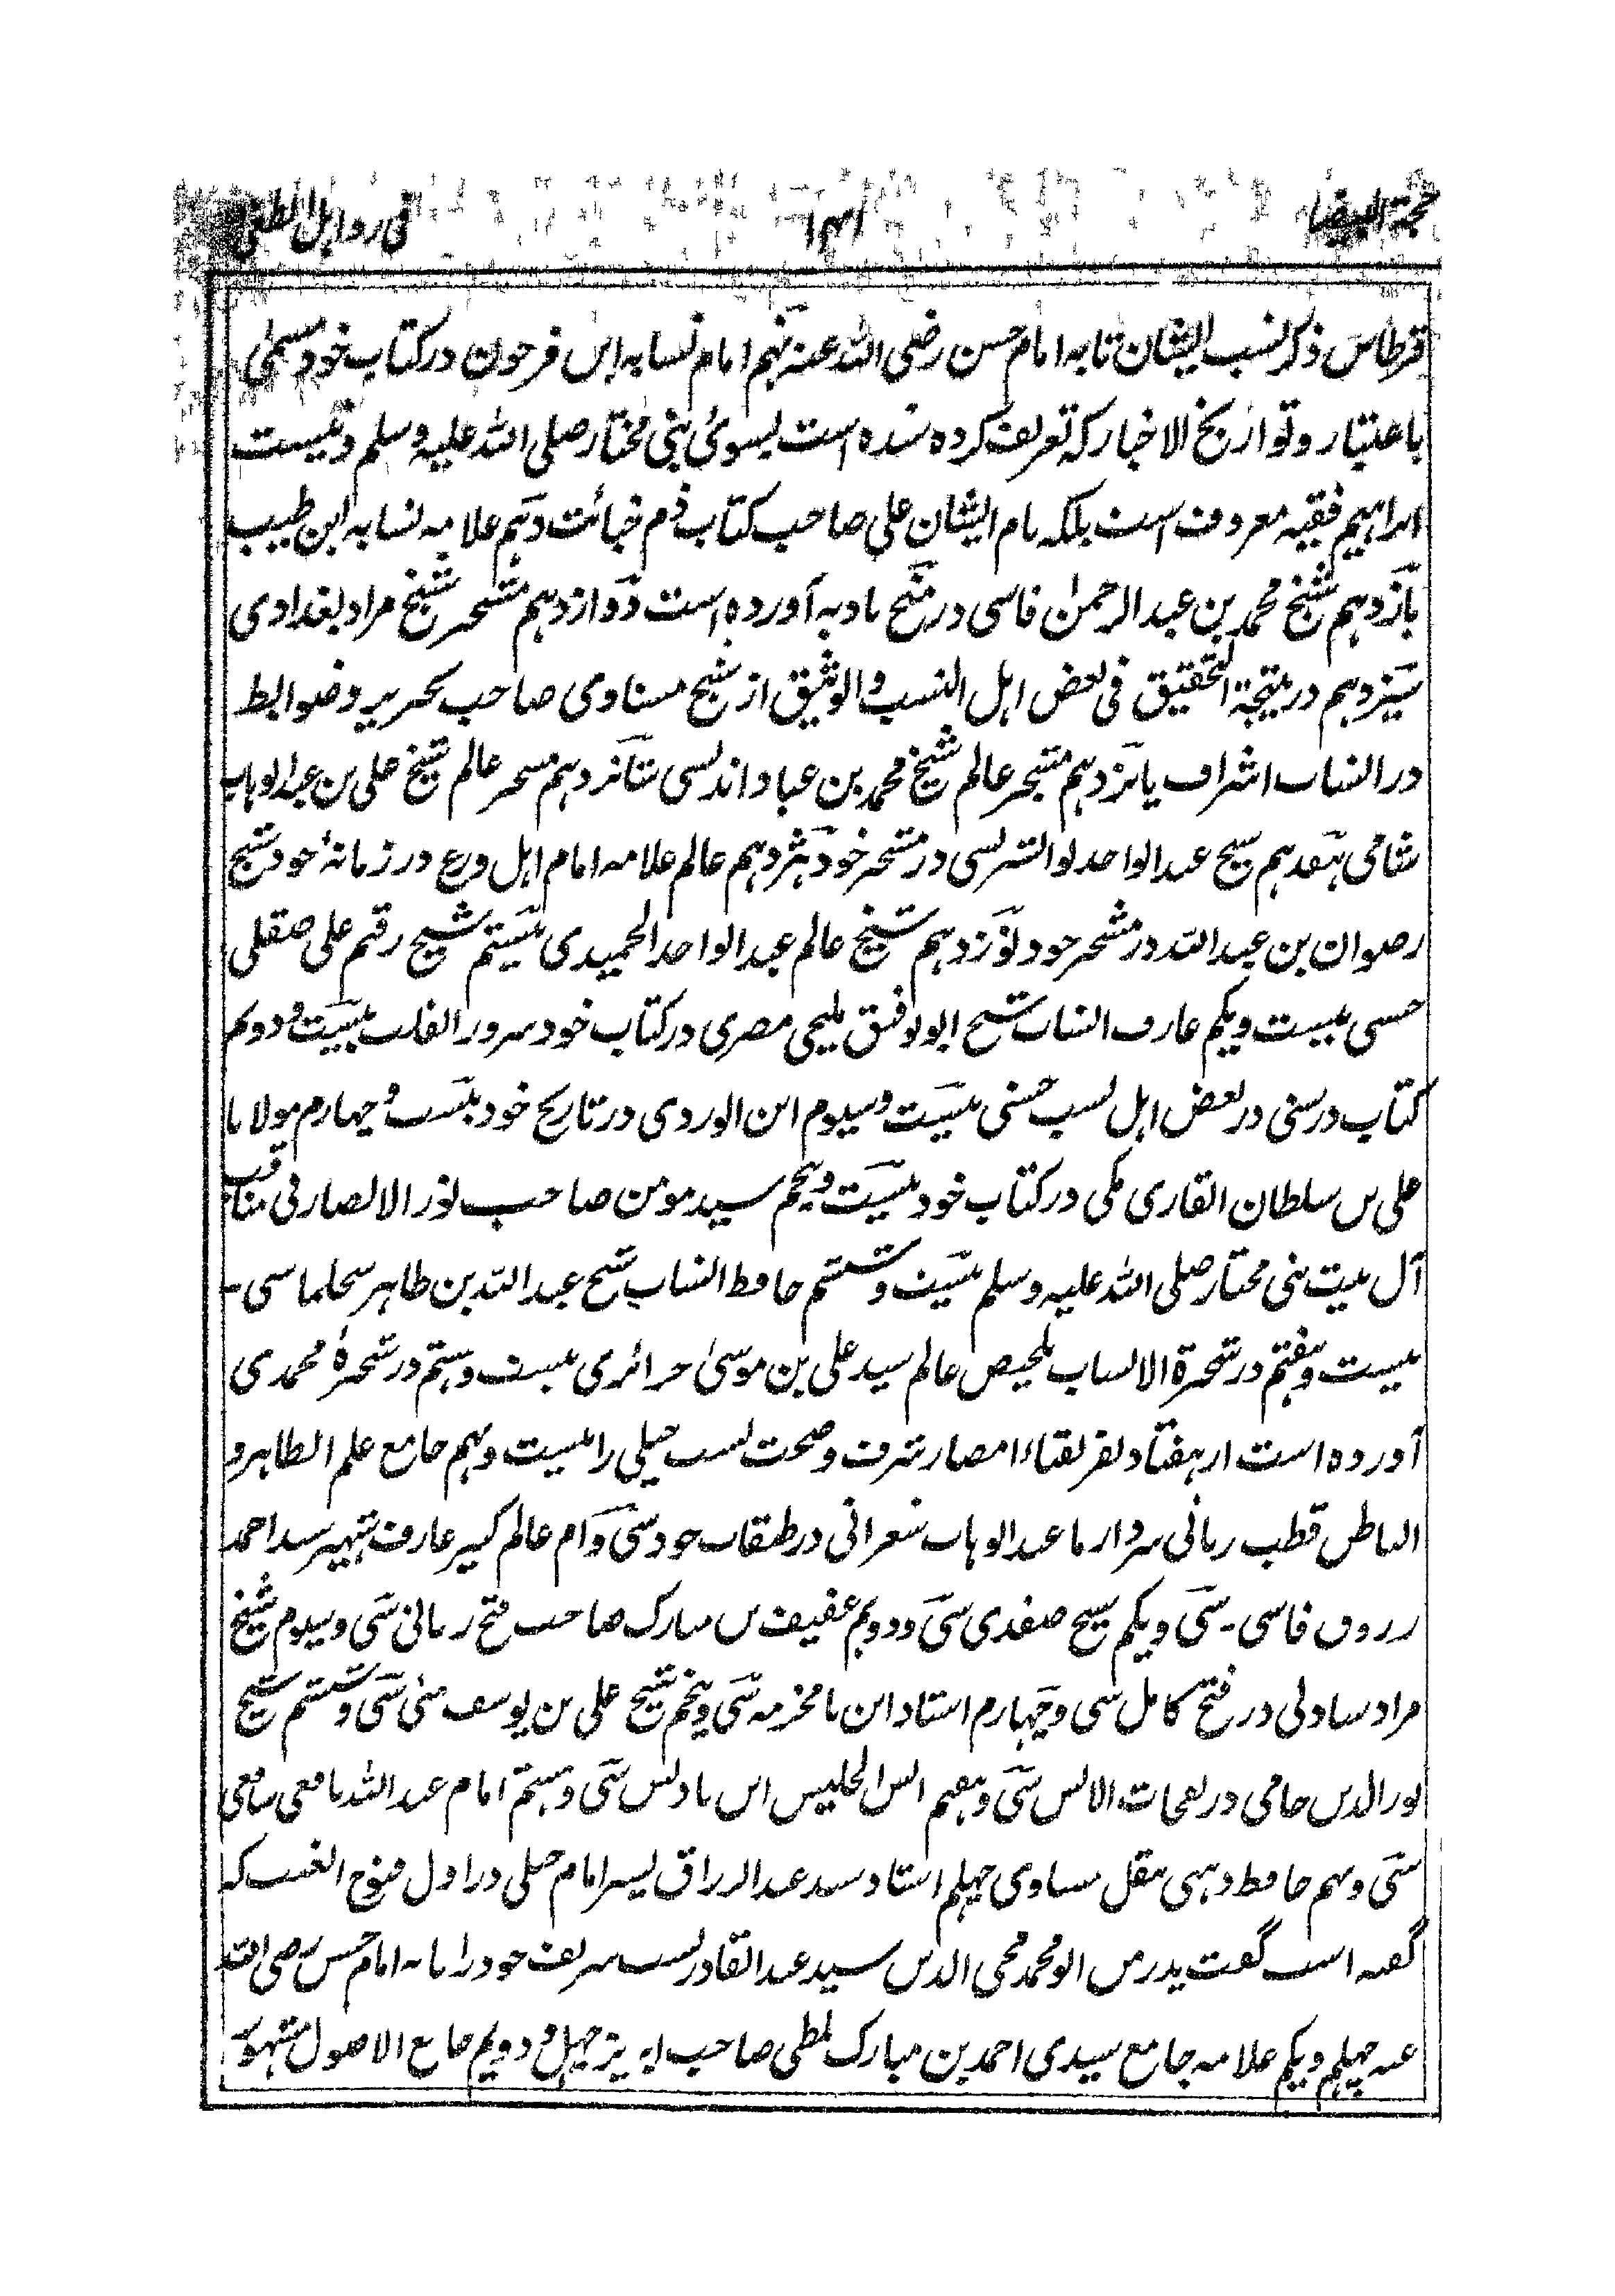 حجة البيضاء ۱۴۱ فی رد اہل الطغی
قرطاس ذکر نسب ایشان تا به امام حسن رضی اللہ عنہ نہم امام نسابه ابن فرحون در کتاب خود مسمی
باعتبار و تواریخ الاخبار که تعریف کرده شده است بسوئ بنی مختار صلی اللہ علیہ وسلم ونیست
ابراہیم فقیہ معروف است بلکہ نام ایشان علی صاحب کتاب ذم خبائث دہم علامہ نسابہ ابن طبیب
یازدہم شیخ محمد بن عبد الرحمٰن فاسی در منح بادیہ آورده است دوازدہم مشجر شیخ مراد بغدادی
سیزدہم در نتیجۃ التحقیق فی بعض اہل النسب والوثیق از شیخ مسناوی صاحب تحریر وضوابط
در انساب اشراف پانزدہم متبحر عالم شیخ محمد بن عباد اندلسی شانزدہم متبحر عالم شیخ علی بن عبد الوہاب
ہفدہم شیخ عبد الواحد در مشجر خود ہژدہم عالم علامہ امام اہل ورع در زمانۂ خود شیخ
رضوان بن عبد اللہ در مشجر خود نوزدہم شیخ عالم عبد الواحد الحمیدی بیستم شیخ رقم علی صقلی
حسنی بیست ویکم عارف انساب شیخ ابو توفیق ملیجی مصری در کتاب خود سرور القلب بیست ودوم
کتاب درسنی در بعض اہل نسب حسنی بیست وسیوم ابن الوردی در تاریخ خود بیست وچہارم مولانا
علی بن سلطان القاری مکی در کتاب خود بیست وپنجم سید مومن صاحب نور الابصار فی مناقب
آل بیت نبی مختار صلی اللہ علیہ وسلم بیست وششم حافظ انساب شیخ عبد اللہ بن طاہر سجلماسی -
بیست وہفتم در شجرة الانساب بلخیص عالم سید علی بن موسیٰ جزائری بیست وہشتم در شجرۂ محمدی
آورده است از ہفتاد نفر نقباء امصار شرف وصحت نسب جیلی را بیست ونہم جامع علم الظاہر و
الباطن قطب ربانی سردار ما عبد الوہاب شعرانی در طبقات خود سی وام عالم کبیر عارف شہیر سید احمد
زروق فاسی - سی ویکم شیخ صفدی سی ودویم عفیف بن مبارک صاحب فتح ربانی سی وسیوم شیخ
مراد ساذلی در فتح کامل سی وچہارم استاد ابن بامخرمہ سی وپنجم شیخ علی بن یوسف سی وششم شیخ
نور الدین جامی در نفحات الانس سی وہفتم انس الجلیس ابن بادیس سی وہشتم امام عبد اللہ یافعی شافعی
سی ونہم حافظ ذہبی بنقل مسناوی چہلم استاد سید عبد الرزاق پسر امام جیلی در اول فتوح الغیب که
گفته است گفت پدر من ابو محمد محی الدین سید عبد القادر نسب شریف خود را تا به امام حسن رضی اللہ
عنہ چہلم ویکم علامہ جامع سیدی احمد بن مبارک لمطی صاحب ابریز چہل ودویم جامع الاصول مشہور